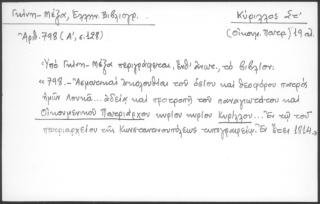 Γκίνη - Μέξα, Ελλην. Βιβλιογρ...
Κύριλλος Στ'
Ἀρθ. 798 (Α', σ. 128)
(Οἰκουμ. Πατρ.) 19 αἰ.
Ὑπὸ Γκίνη - Μέξα περιγράφεται, ἔνθ' ἀνωτ., τὸ βιβλίον:
« 798. - Ἀσματικὴ ἀκολουθία τοῦ ὁσίου καὶ θεοφόρου πατρὸς
ἡμῶν Λουκᾶ ... ἀδείᾳ καὶ προτροπῇ τοῦ παναγιωτάτου καὶ
Οἰκουμενικοῦ Πατριάρχου κυρίου κυρίου Κυρίλλου ... Ἐν τῷ τοῦ
πατριαρχείου τῆς Κωνσταντινουπόλεως τυπογραφείῳ. Ἐν ἔτει 1814.»